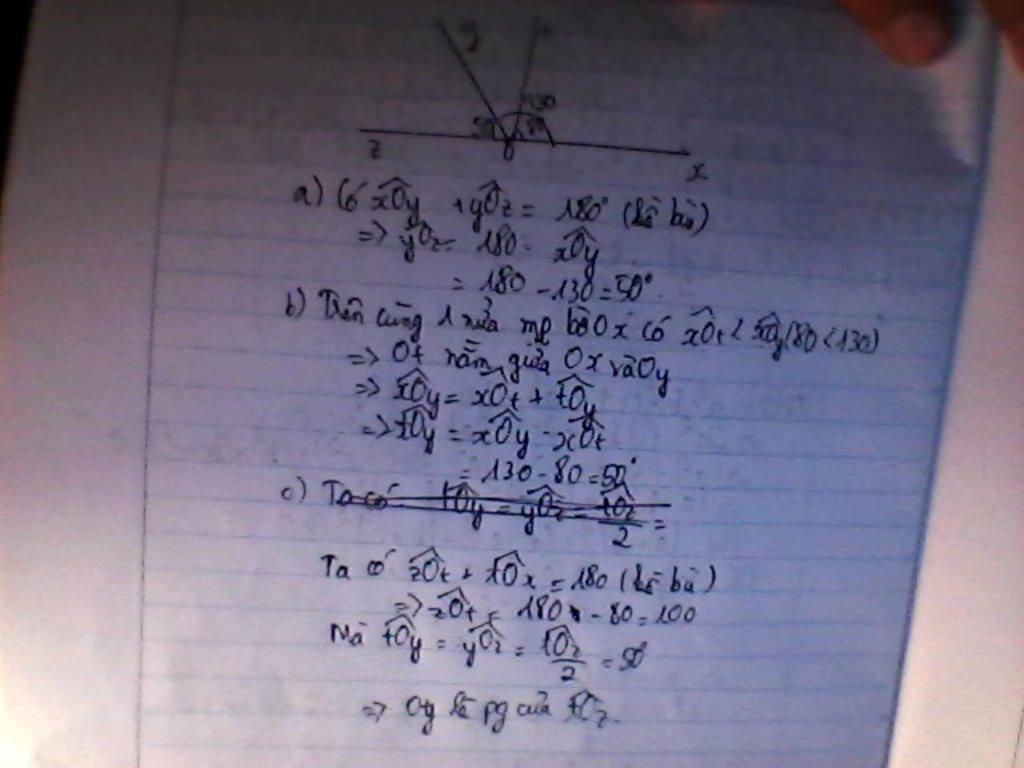 y t
130
50 80
z O x
a) Có xÔy + yÔz = 180° (kề bù)
=> yÔz = 180 - xÔy
= 180 - 130 = 50°
b) Trên cùng 1 nửa mp bờ Ox có xÔt < xÔy (80 < 130)
=> Ot nằm giữa Ox và Oy
=> xÔy = xÔt + tÔy
=> tÔy = xÔy - xÔt
= 130 - 80 = 50°
c) Ta có tÔy = yÔz = tÔz/2 =
Ta có zÔt + tÔx = 180 (kề bù)
=> zÔt = 180 - 80 = 100
Mà tÔy = yÔz = tÔz/2 = 50
=> Oy là pg của tÔz.